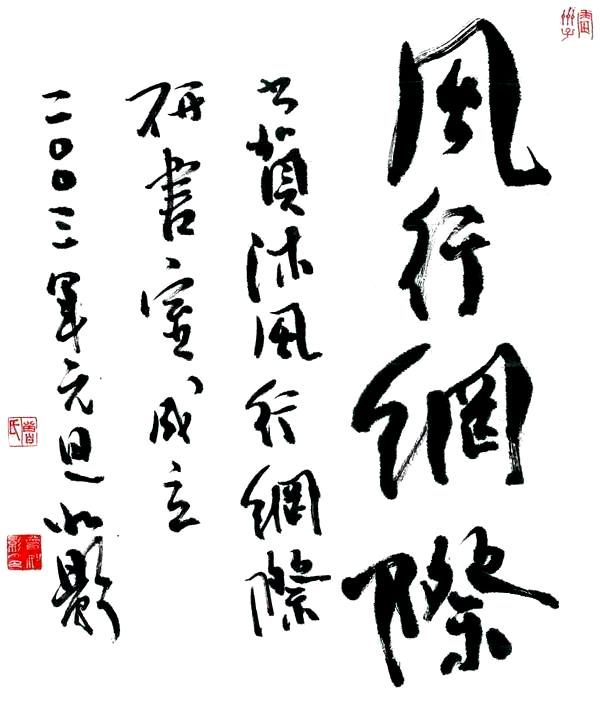 風行網際
賀沐風行網際
研書室成立
二〇〇三年元旦心影